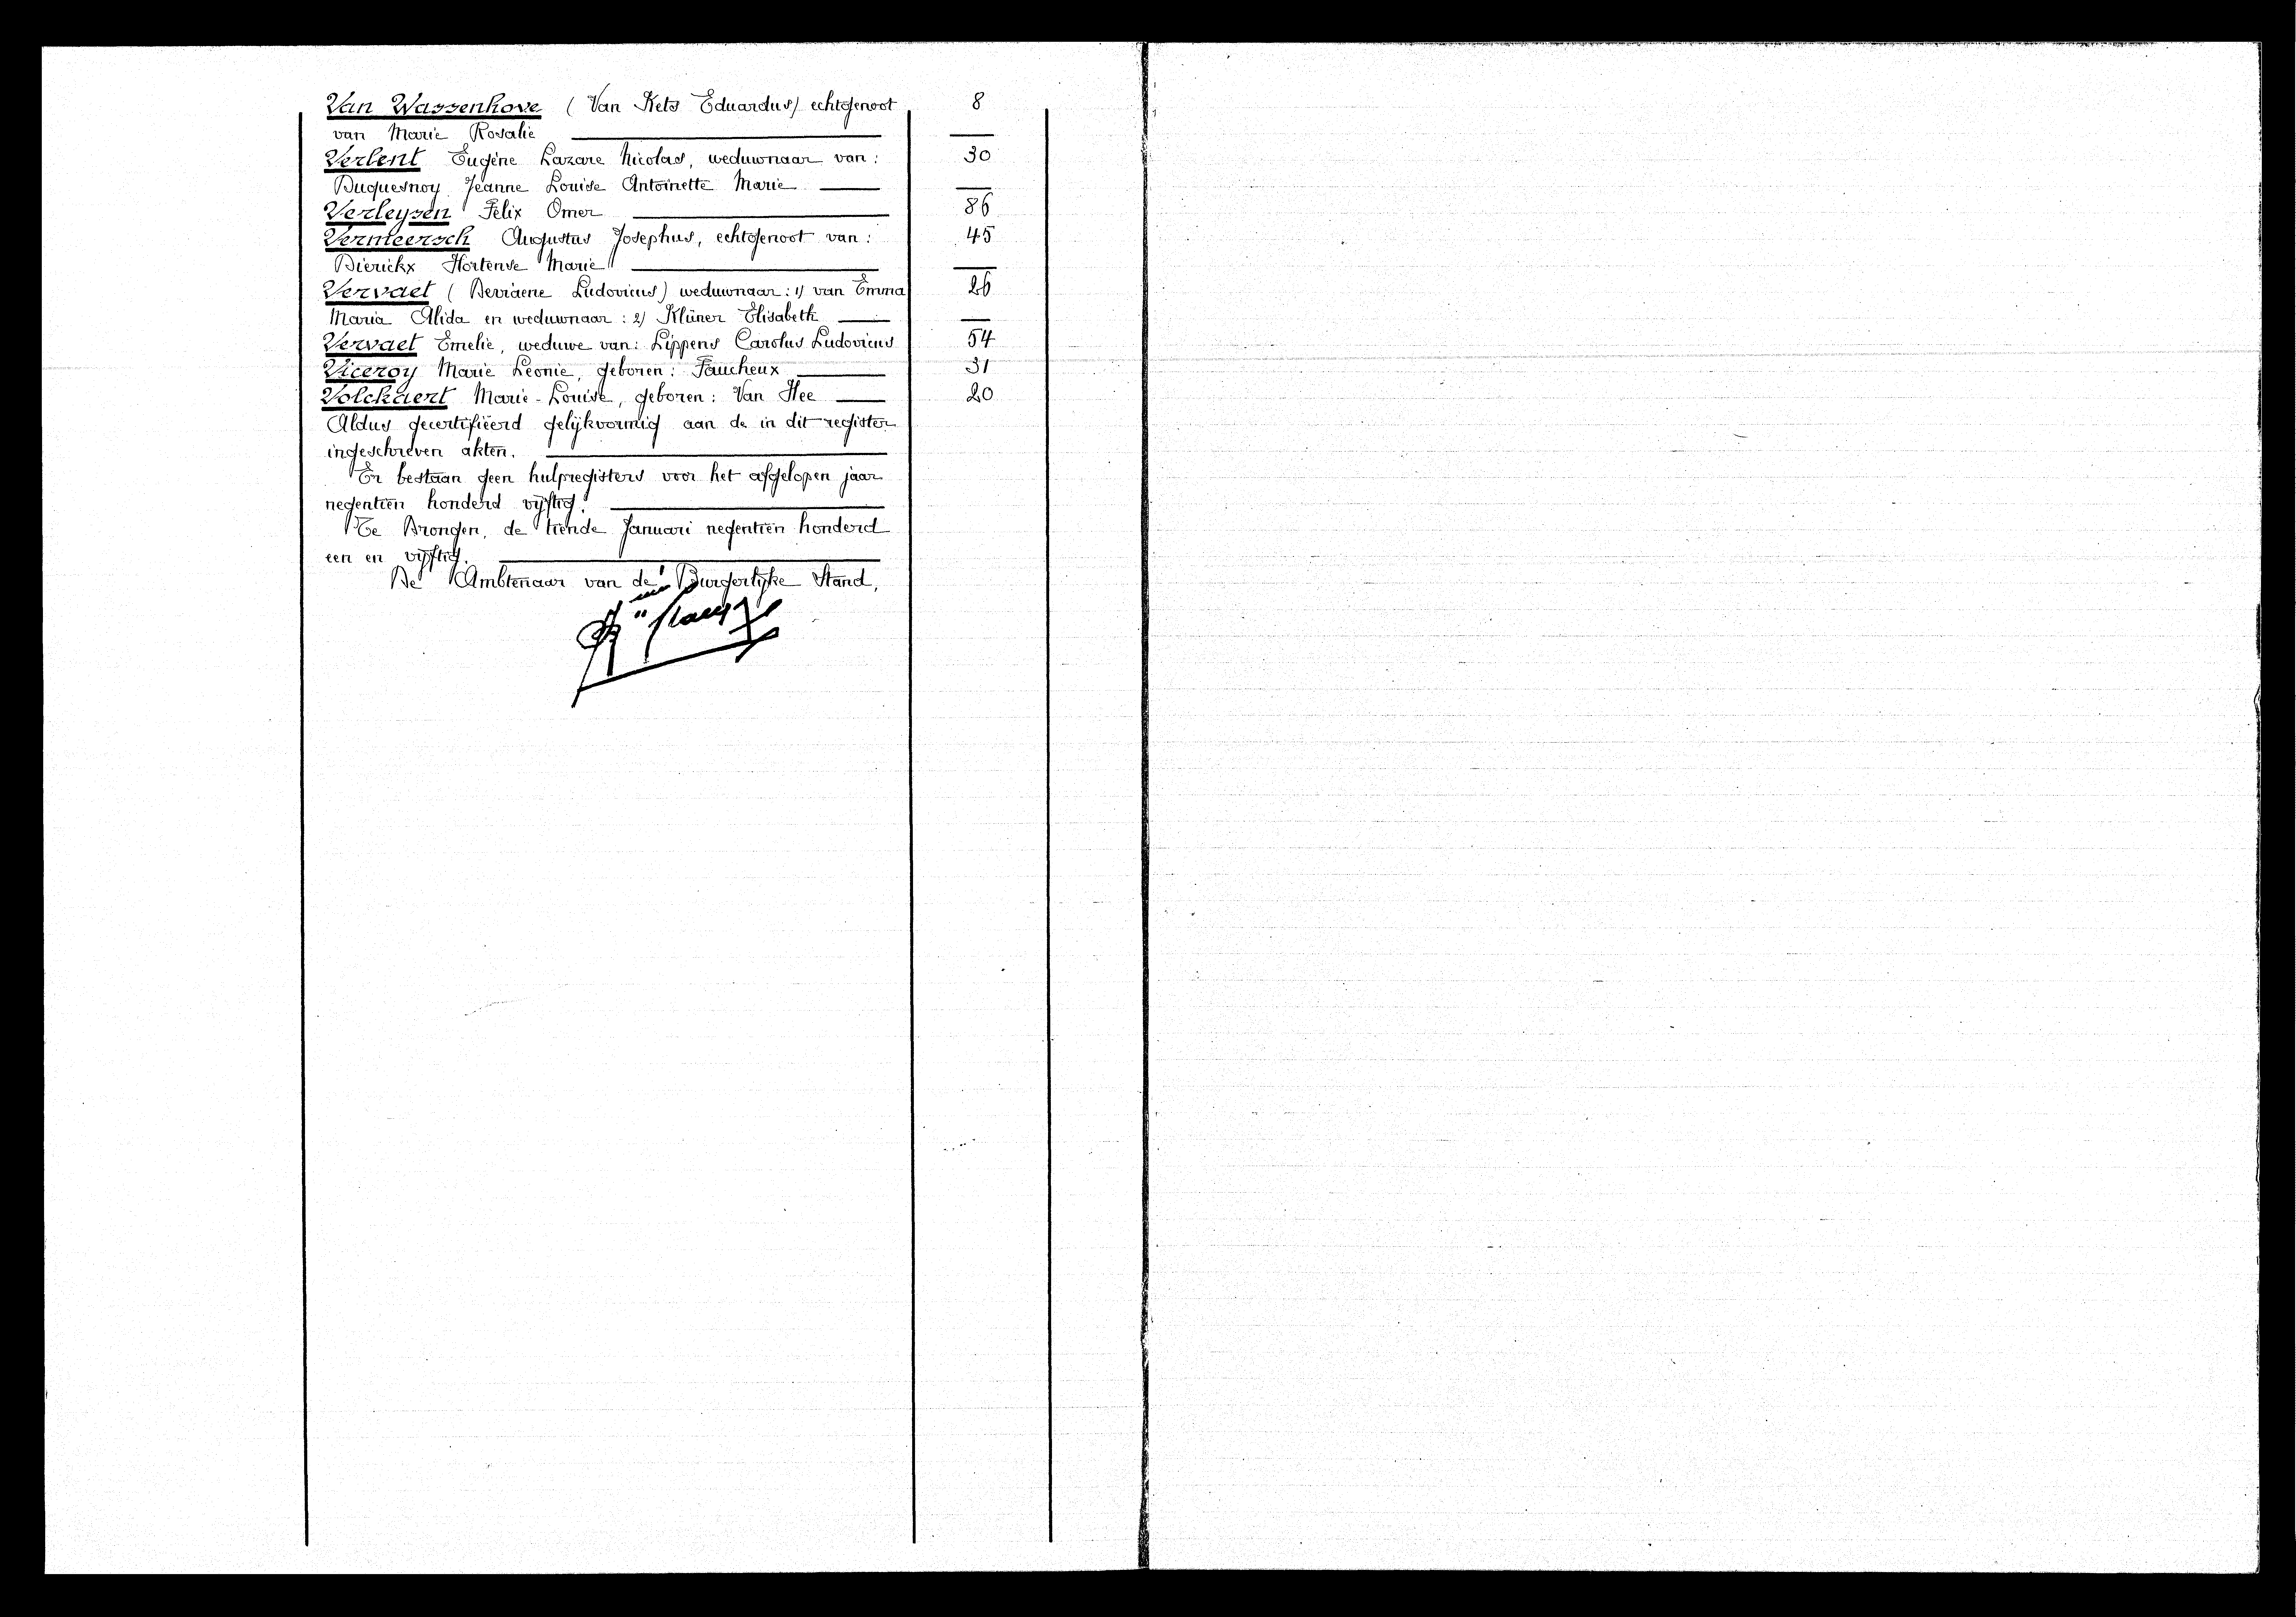 Van Wassenhove (Van Kets Eduardus) echtgenoot 8
van Marie Rosalie
Verlent Eugène Lazare Nicolas, weduwnaar van: 30
Duquesnoy Jeanne Louise Antoinette Marie
Verleysen Felix Omer 86
Vermeersch Augustus Josephus, echtgenoot van: 45
Dierickx Hortense Marie
Vervaet (Devriaene Ludovicus) weduwnaar: 1) van Emma 26
Maria Alida en weduwnaar: 2) Klüner Elisabeth
Vervaet Emelie, weduwe van: Lippens Carolus Ludovicus 54
Viceroy Marie Leonie, geboren: Faucheux 31
Volckaert Marie-Louise, geboren: Van Hee 20
Aldus gecertifiëerd gelijkvormig aan de in dit register
ingeschreven akten.
Er bestaan geen hulpregisters voor het afgelopen jaar
negentien honderd vijftig.
Te Drongen, de tiende Januari negentien honderd
een en vijftig.
De Ambtenaar van de Burgerlijke Stand,